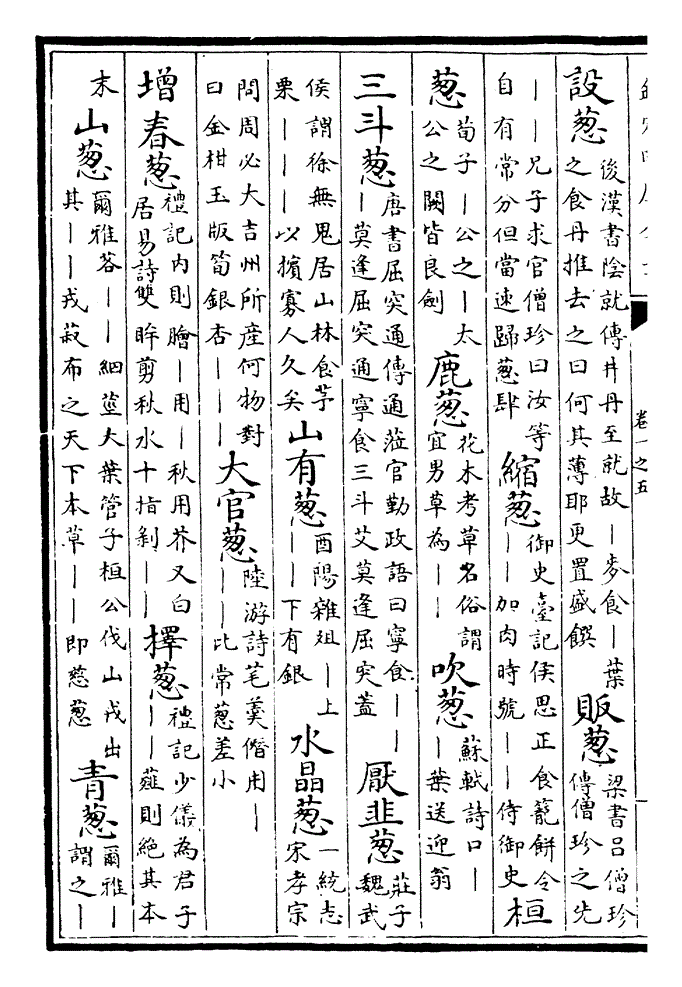 卷一之五
設葱後漢書陰就傳井丹至就故｜麥食｜葉之食丹推去之曰何其薄耶更置盛饌販葱梁書呂僧珍傳僧珍之先
｜｜兄子求官僧珍曰汝等自有常分但當速歸葱肆縮葱御史臺記侯思正食籠餅令｜｜加肉時號｜｜侍御史桓
葱荀子｜公之｜太公之闕皆良劍鹿葱花木考草名俗謂宜男草為｜｜吹葱蘇軾詩口｜｜葉送迎翁
三斗葱唐書屈突通傳通蒞官勤政語曰寧食｜｜｜莫逢屈突通寧食三斗艾莫逢屈突蓋厭韭葱莊子魏武
侯謂徐無鬼居山林食芧栗｜｜｜以擯寡人久矣山有葱酉陽雜俎｜上｜｜下有銀水晶葱一統志宋孝宗
問周必大吉州所産何物對曰金柑玉版筍銀杏｜｜｜大官葱陸游詩芼羮僭用｜｜｜比常葱差小
增春葱禮記内則膾｜用｜秋用芥又白居易詩雙眸剪秋水十指剝｜｜擇葱禮記少儀為君子｜｜薤則絶其本
末山葱爾雅茖｜｜細莖大葉管子桓公伐山戎出其｜｜戎菽布之天下本草｜｜即慈葱青葱爾雅｜謂之｜